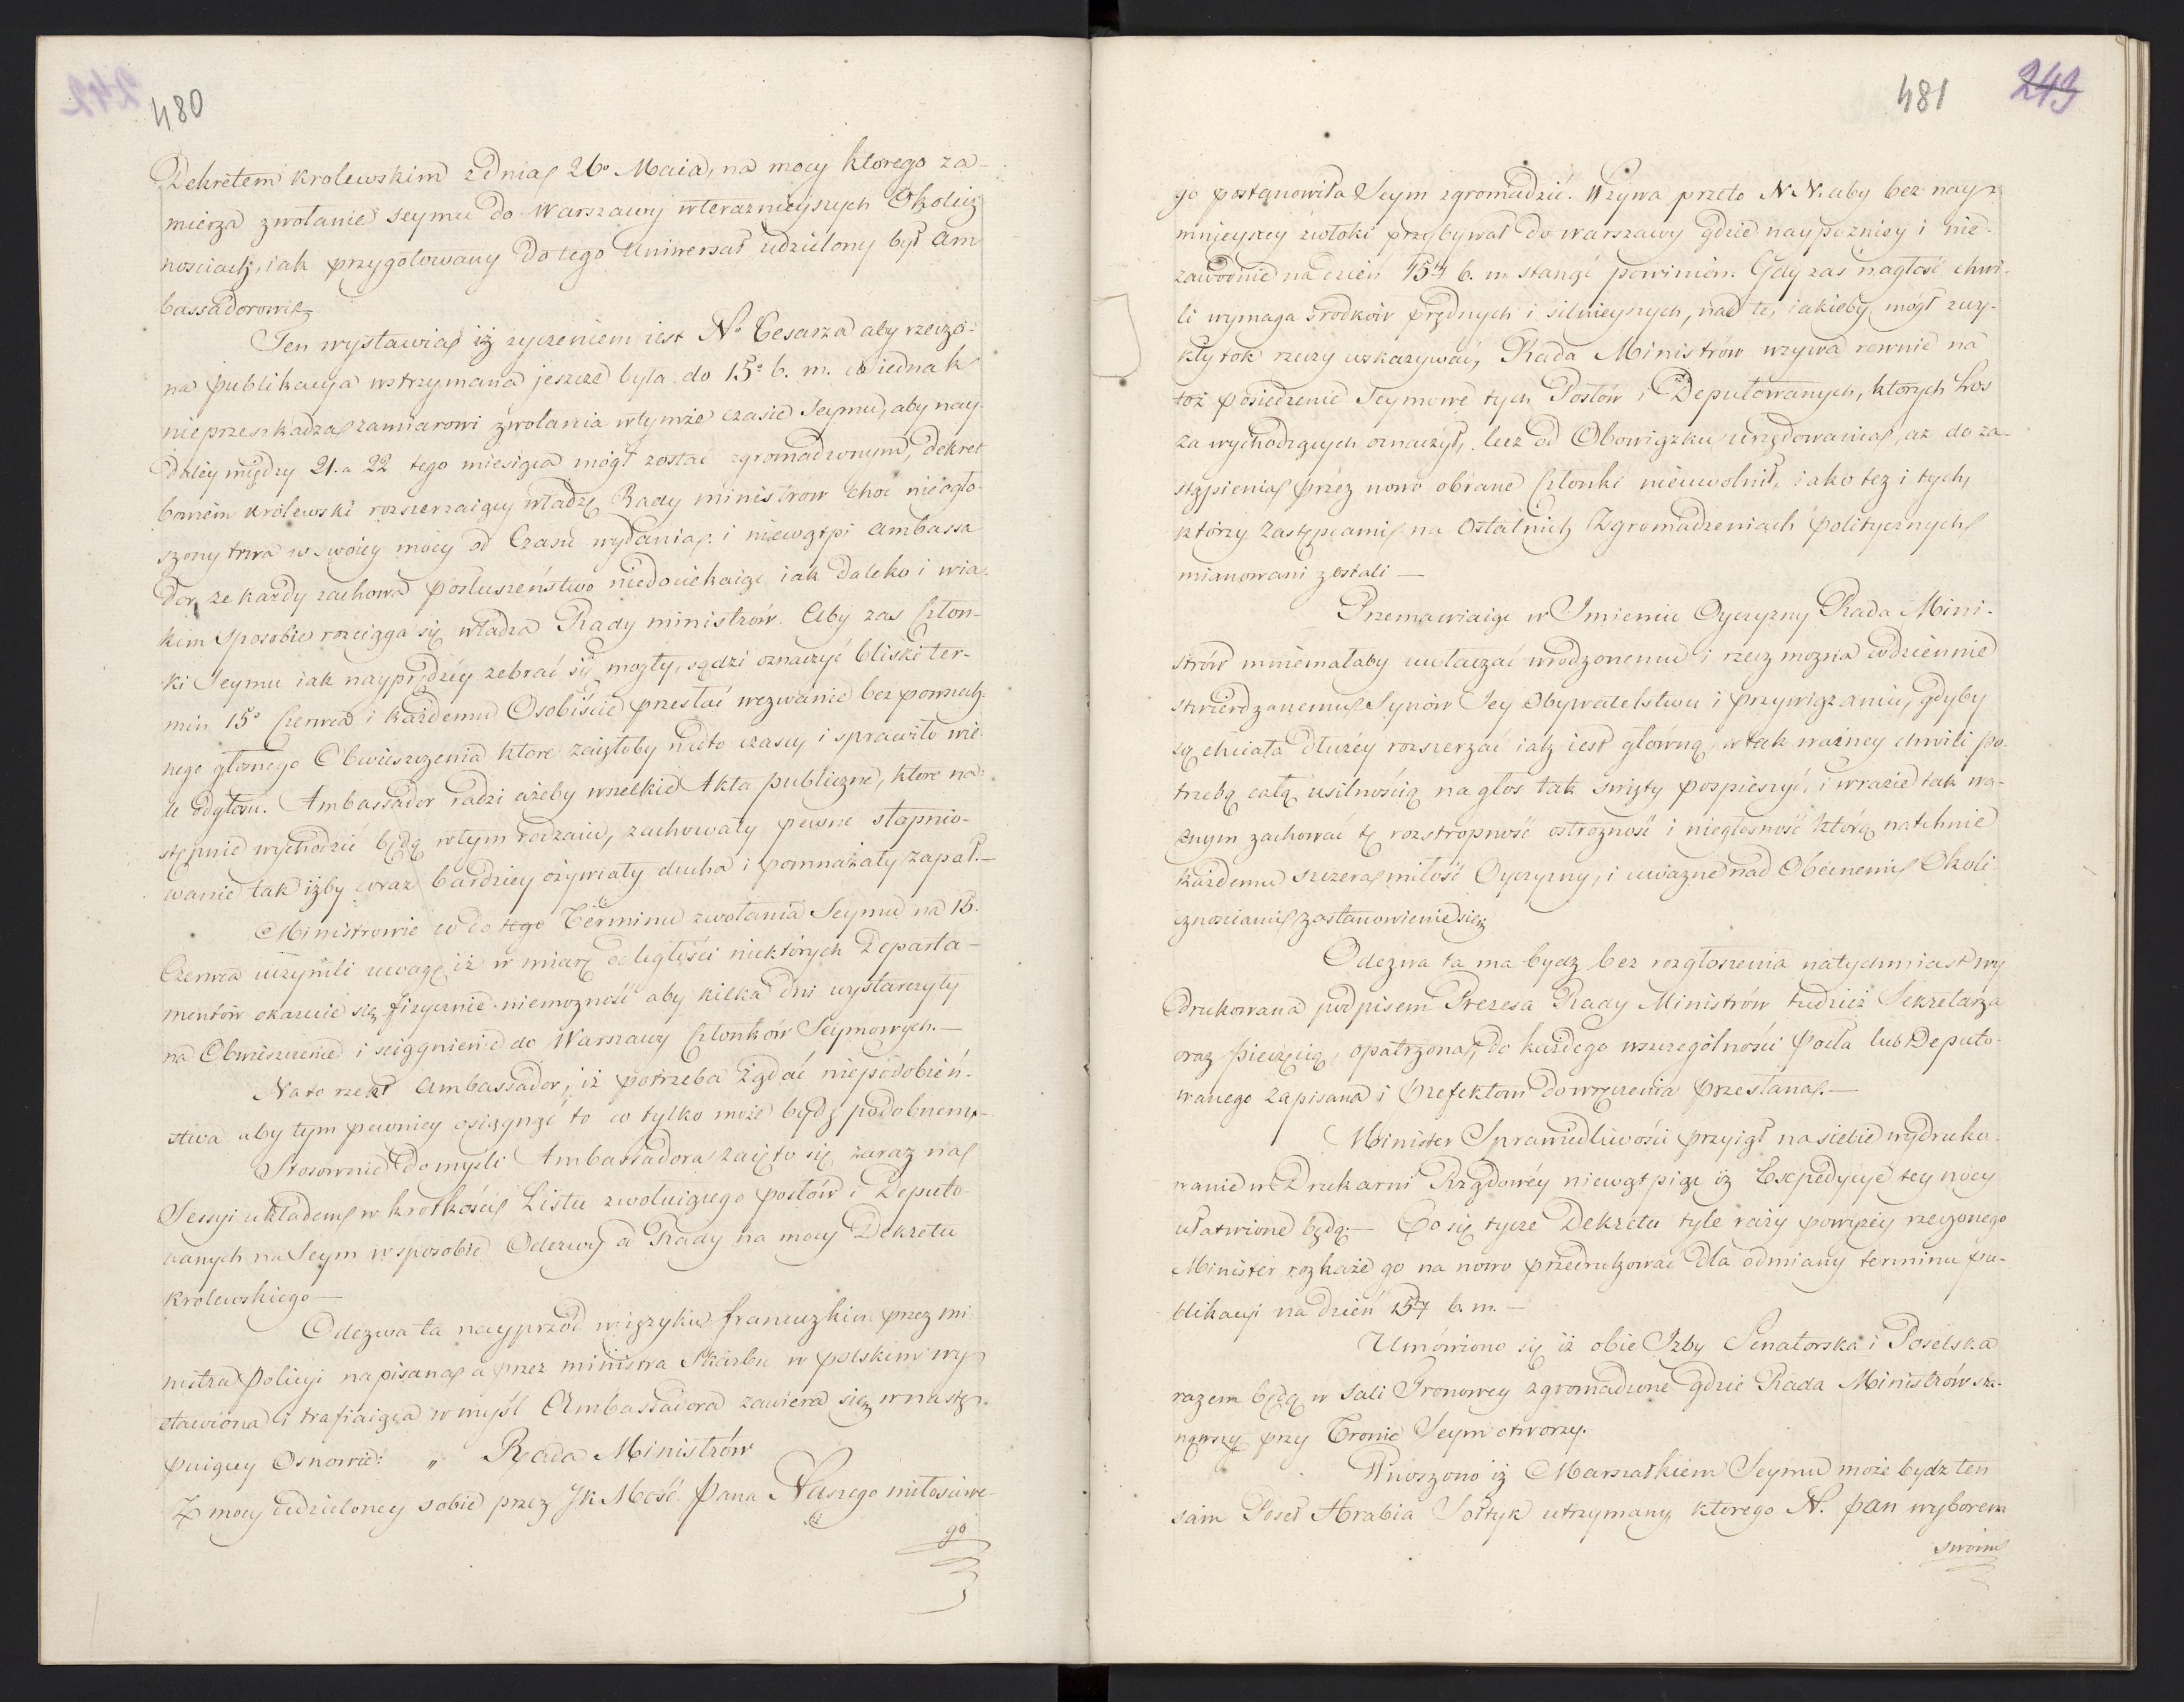 480
Dekretem krolewskim z dnia 26º Maia, na mocy ktorego za-
mierza zwołanie seymu do Warszawy w teraznieyszych Okolicz
nosciach, iak przygotowany do tego Uniwersał udzielony był Am
bassadorowi
Ten wystawia iż zyczeniem iest Nº Cesarza aby rzeczo-
na publikacya wstrzymana jeszcze była do 15º b. m. co iednak
nieprzeszkadza zamiarowi zwołania w tymże czasie Seymu, aby nay-
daley między 21. a 22 tego miesiąca mógł zostać zgromadzonym, dekret
bowiem królewski rozszerzaiący władzę Rady ministrów choć nieogło-
szony trwa w swoiey mocy od Czasu wydania i niewątpi Ambassa
dor, ze każdy zachowa posłuszeństwo niedociekaiąc iak daleko i w ia-
kim sposobie rozciąga się władza Rady ministrów. Aby zas Człon-
ki Seymu iak nayprędzéy zebrać się mogły, sądzi oznaczyć bliski ter-
min 15º Czerwca i każdemu Osobiście przesłać wezwanie bez powszech-
nego głośnego Obwieszczenia ktore zaięłoby nadto czasu i sprawiło wie-
le odgłosu. Ambassador radzi ażeby wszelkie Akta publiczne, które na-
stępnie wychodzić będą w tym rodzaiu, zachowały pewne stopnio-
wanie tak iżby coraz bardziey ożywiały ducha i pomnażały zapał.—
Ministrowie co do tego Terminu zwołania Seymu na 15.
Czerwca uczynili uwagę iż w miarę odległości niektórych Departa-
mentów okazuie się fizycznie niemozność aby kilka dni wystarczyły
na Obwieszczenie i sciągnienie do Warszawy Członków Seymowych.—
Na to rzekł Ambassador, iż potrzeba żądać niepodobień-
stwa aby tym pewniey osiągnąć to co tylko może bydź podobnem.—
Stosownie do myśli Ambassadora zaięto się zaraz na
Sessyi układem w krotkości Listu zwołuiącego posłów i Deputo-
wanych na Seym w sposobie Odezwy od Rady na mocy Dekretu
krolewskiego—
Odezwa ta nayprzód w ięzyku francuzkim przez mi-
nistra Policyi napisana a przez ministra Skarbu w polskim wy-
stawiona i trafiaiąca w myśl Ambassadora zawiera się w nastę-
puiącey Osnowie: „ Rada Ministrów
Z mocy udzieloney sobie przez Jk Mość Pana Naszego miłosciwe-
go
481 243
go postanowiła Seym zgromadzić. Wzywa przeto N N. aby bez nay-
mnieyszey zwłoki przybywał do Warszawy gdzie naypozniey i nie-
zawodnie na dzień 15ty b. m. stanąć powinien. Gdy zas nagłość chwi-
li wymaga srodków prędnych i silnieyszych, nad te, iakieby mógł zwy-
kły tok rzeczy wskazywać, Rada Ministrów wzywa rownie na
toż posiedzenie Seymowe tych Posłów i Deputowanych, ktorych Los
za wychodzących oznaczył, lecz od Obowiązku urzędowania, az do za-
stąpienia przez nowo obrane Członki nieuwolnił, iako tez i tych,
którzy Zastępcami na Ostatnich Zgromadzeniach politycznych
mianowani zostali —
Przemawiaiąc w Imieniu Oyczyzny Rada Mini-
strów mniemałaby uwłaczać wrodzonemu i rzecz mozna codziennie
stwierdzanemu Synów Jey Obywatelstwu i przywiązaniu, gdyby
się chciała dłużéy rozszerzać iak iest główną w tak ważney chwili po-
trzebą całą usilnością na głos tak swięty pospieszyć, i w razie tak wa-
żnym zachować tę rozstropność ostrożność i niegłosność którą natchnie
każdemu szczera miłość Oyczyzny, i uwazne nad Obecnemi Okoli
cznosciami zastanowienie się
Odezwa ta ma bydz bez rozgłoszenia natychmiast wy
drukowana podpisem Prezesa Rady Ministrów tudzież Sekretarza
oraz pieczęcią opatrzona, do każdego wszczególności posła lub Deputo-
wanego zapisana i Prefektom do wręczenia przesłana.—
Minister Sprawiedliwości przyiął na siebie wydruko-
wanie w Drukarni Rządowéy niewątpiąc iż Expedycye tey nocy
ułatwione będą.— Co się tycze Dekretu tyle razy powyżéy rzeczonego
Minister rozkaże go na nowo przedrukować dla odmiany terminu pu-
blikacyi na dzień 15ty b. m.—
Umówiono się iż obie Izby Senatorska i Poselska
razem będą w Sali Tronowey zgromadzone gdzie Rada Ministrów sta-
nąwszy przy Tronie Seym otworzy.
Wnoszono iż Marszałkiem Seymu może bydz ten
sam Poseł Hrabia Sołtyk utrzymany, ktorego N. Pan wyborem
swoim